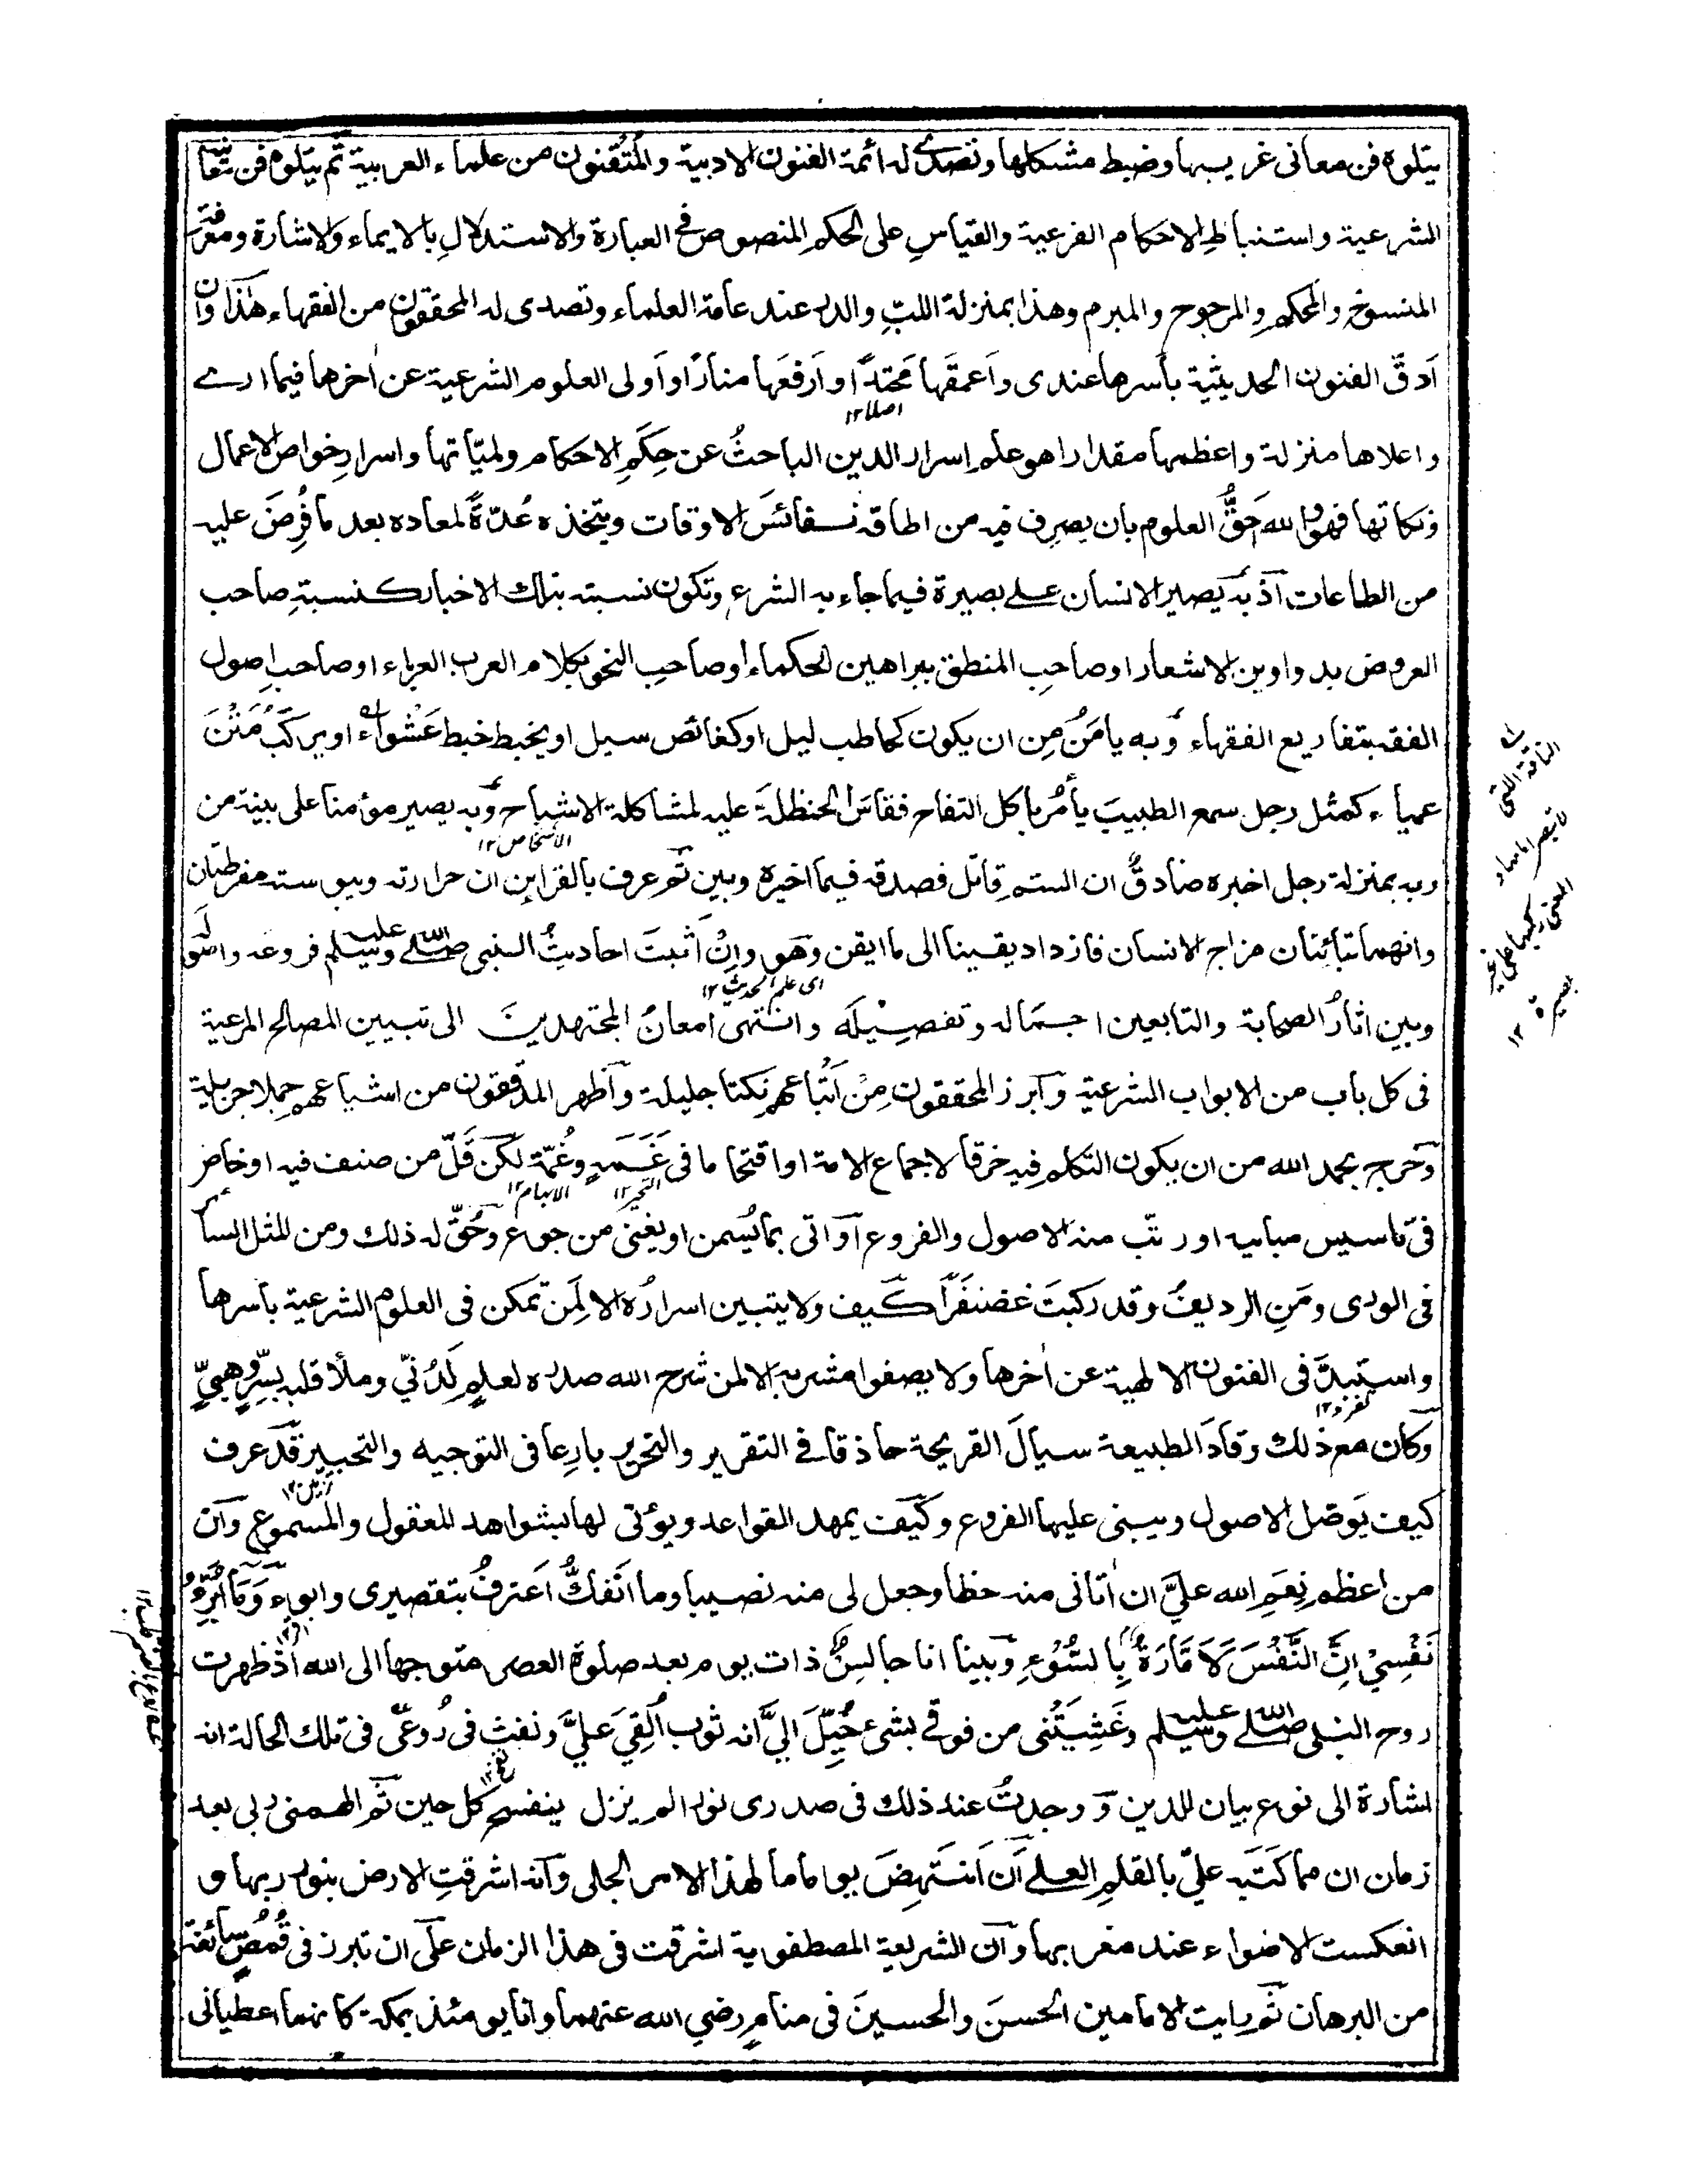 يتلوه فن معانى غريبها وضبط مشكلها وتصدى له ائمة الفنون الادبية والمتقنون من علماء العربية ثم يتلوه فن معا
الشرعية واستنباط الاحكام الفرعية والقياس على الحكم المنصوص فى العبارة والاستدلال بالايماء والاشارة ومعرفة
المنسوخ والمحكم والمرجوح والمبرم وهذا بمنزلة اللبّ والدر عند عامة العلماء وتصدى له المحققون من الفقهاء هذا وان
اَدقّ الفنون الحديثية باسرها عندى واَعمقَها مَحْتِداً واَرفعَها مناراً واَولى العلوم الشرعية عن اٰخرها فيما ارى
اصلا ١٢
واعلاها منزلة واعظمها مقدارا هو علم اسرار الدين الباحثُ عن حِكَمِ الاحكام ولميّاتها واسرار خواص الاعمال
ونكاتها فهو والله اَحَقُّ العلوم بان يصرف فيه من اطاقه نفائسَ الاوقات ويتخذه عُدّةً لمعاده بعد ما فُرِضَ عليه
من الطاعات اذ به يصير الانسان على بصيرة فيما جاء به الشرع وتكون نسبته بتلك الاخبار كنسبة صاحب
العروض بدواوين الاشعار او صاحب المنطق ببراهين الحكماء او صاحب النحو بكلام العرب العرباء او صاحب اصول
الفقه بتفاريع الفقهاء وبه يامَنُ مِن ان يكون كحاطب ليل او كغائص سيل او يخبط خبط عَشْواء او يركَبُ مَتْنَ
عمياء كمثل رجل سمع الطبيبَ يأمُر باكل التفاح فقاس الحنظلةَ عليه لمشاكلة الاشباح وبه يصير مؤمنا على بينة من
الاشخاص ١٢
ربه بمنزلة رجل اخبره صادقٌ ان السم قاتل فصدقه فيما اخبره وبين ثم عرف بالقراين ان حرارته ويبوسته مفرطتان
وانهما تباينان مزاج الانسان فازداد يقينا الى ما ايقن وهو وان اَثبتَ احاديثُ النبى صلى الله عليه وسلم فروعه واصوله
اى علم الحديث ١٢
وبين اٰثارُ الصحابة والتابعين اجماله وتفصيله وانتهى امعانُ المجتهدين الى تبيين المصالح المرعية
فى كل باب من الابواب الشرعية وابرز المحققون مِنْ اَتْباعهم نكتا جليلة واظهر المدققون من اشياعهم جملا جزيلة
وخرج بحمد الله من ان يكون التكلم فيه خرقا لاجماع الامة او اقتحاما فى عَمَهٍ وغُمّة لكن قَلّ من صنف فيه او خاض
التحير ١٢ الابهام ١٢
فى تاسيس مبانيه او رتّب منه الاصول والفروع او اتى بما يُسمن او يغنى من جوع وحُقّ له ذلك ومن المثل السائر
فى الورى ومَنِ الرديفُ وقد ركبتَ غضنفَراً كيف ولا يتبين اسراره الا لِمَن تمكن فى العلوم الشرعية باسرها
واستبدّ فى الفنون الالهية عن اٰخرها ولا يصفوا مشربه الا لمن شرح الله صدره لعلمٍ لَدُنّي وملأ قلبه بسرٍّ وهبيٍّ
تفرد ١٢
وكان مع ذلك وقادَ الطبيعة سيالَ القريحة حاذقا فى التقرير والتحرير بارعا فى التوجيه والتحبير قد عرف
تزيين ١٢
كيف يَوصّل الاصول ويبنى عليها الفروع وكيف يمهد القواعد ويؤتى لها بشواهد المعقول والمسموع وان
من اعظم نِعَمِ الله عليّ ان اٰتانى منه حظا وجعل لى منه نصيبا وما انفكُّ اعترفُ بتقصيرى وابوء وَمَا اُبَرِّئُ
اقر ١٢
نَفْسِيْ اِنَّ النَّفْسَ لَاَمَّارَةٌ بِالسُّوْءِ وبينا انا جالسٌ ذات يوم بعد صلوة العصر متوجها الى الله اذ ظهرت
روح النبى صلى الله عليه وسلم وغَشِيَتْنى من فوقى بشىء خُيِّلَ اليَّ انه ثوب اُلْقِيَ عَليَّ ونفث فى رُوعى فى تلك الحالة انه
نفخ ١٢
اشارة الى نوع بيان للدين و وجدتُ عند ذلك فى صدرى نورا لم يزل ينفسح كل حين ثم الهمنى ربى بعد
زمان ان مما كتَبَه عليّ بالقلم العلى اَن اَنتهِضَ يوما ما لهذا الامر الجلى وانه اشرقت الارض بنور ربها و
انعكست الاضواء عند مغربها وان الشريعة المصطفوية اشرقت فى هذا الزمان على ان تبرز فى قُمُصٍ سابغة
من البرهان ثم رايت الامامين الحسنَ والحسينَ فى منامٍ رضى الله عنهما وانا يومئذ بمكة كانهما اعطيانى
الناقة التى
لا تبصر امامها و
بصيرة ١٢